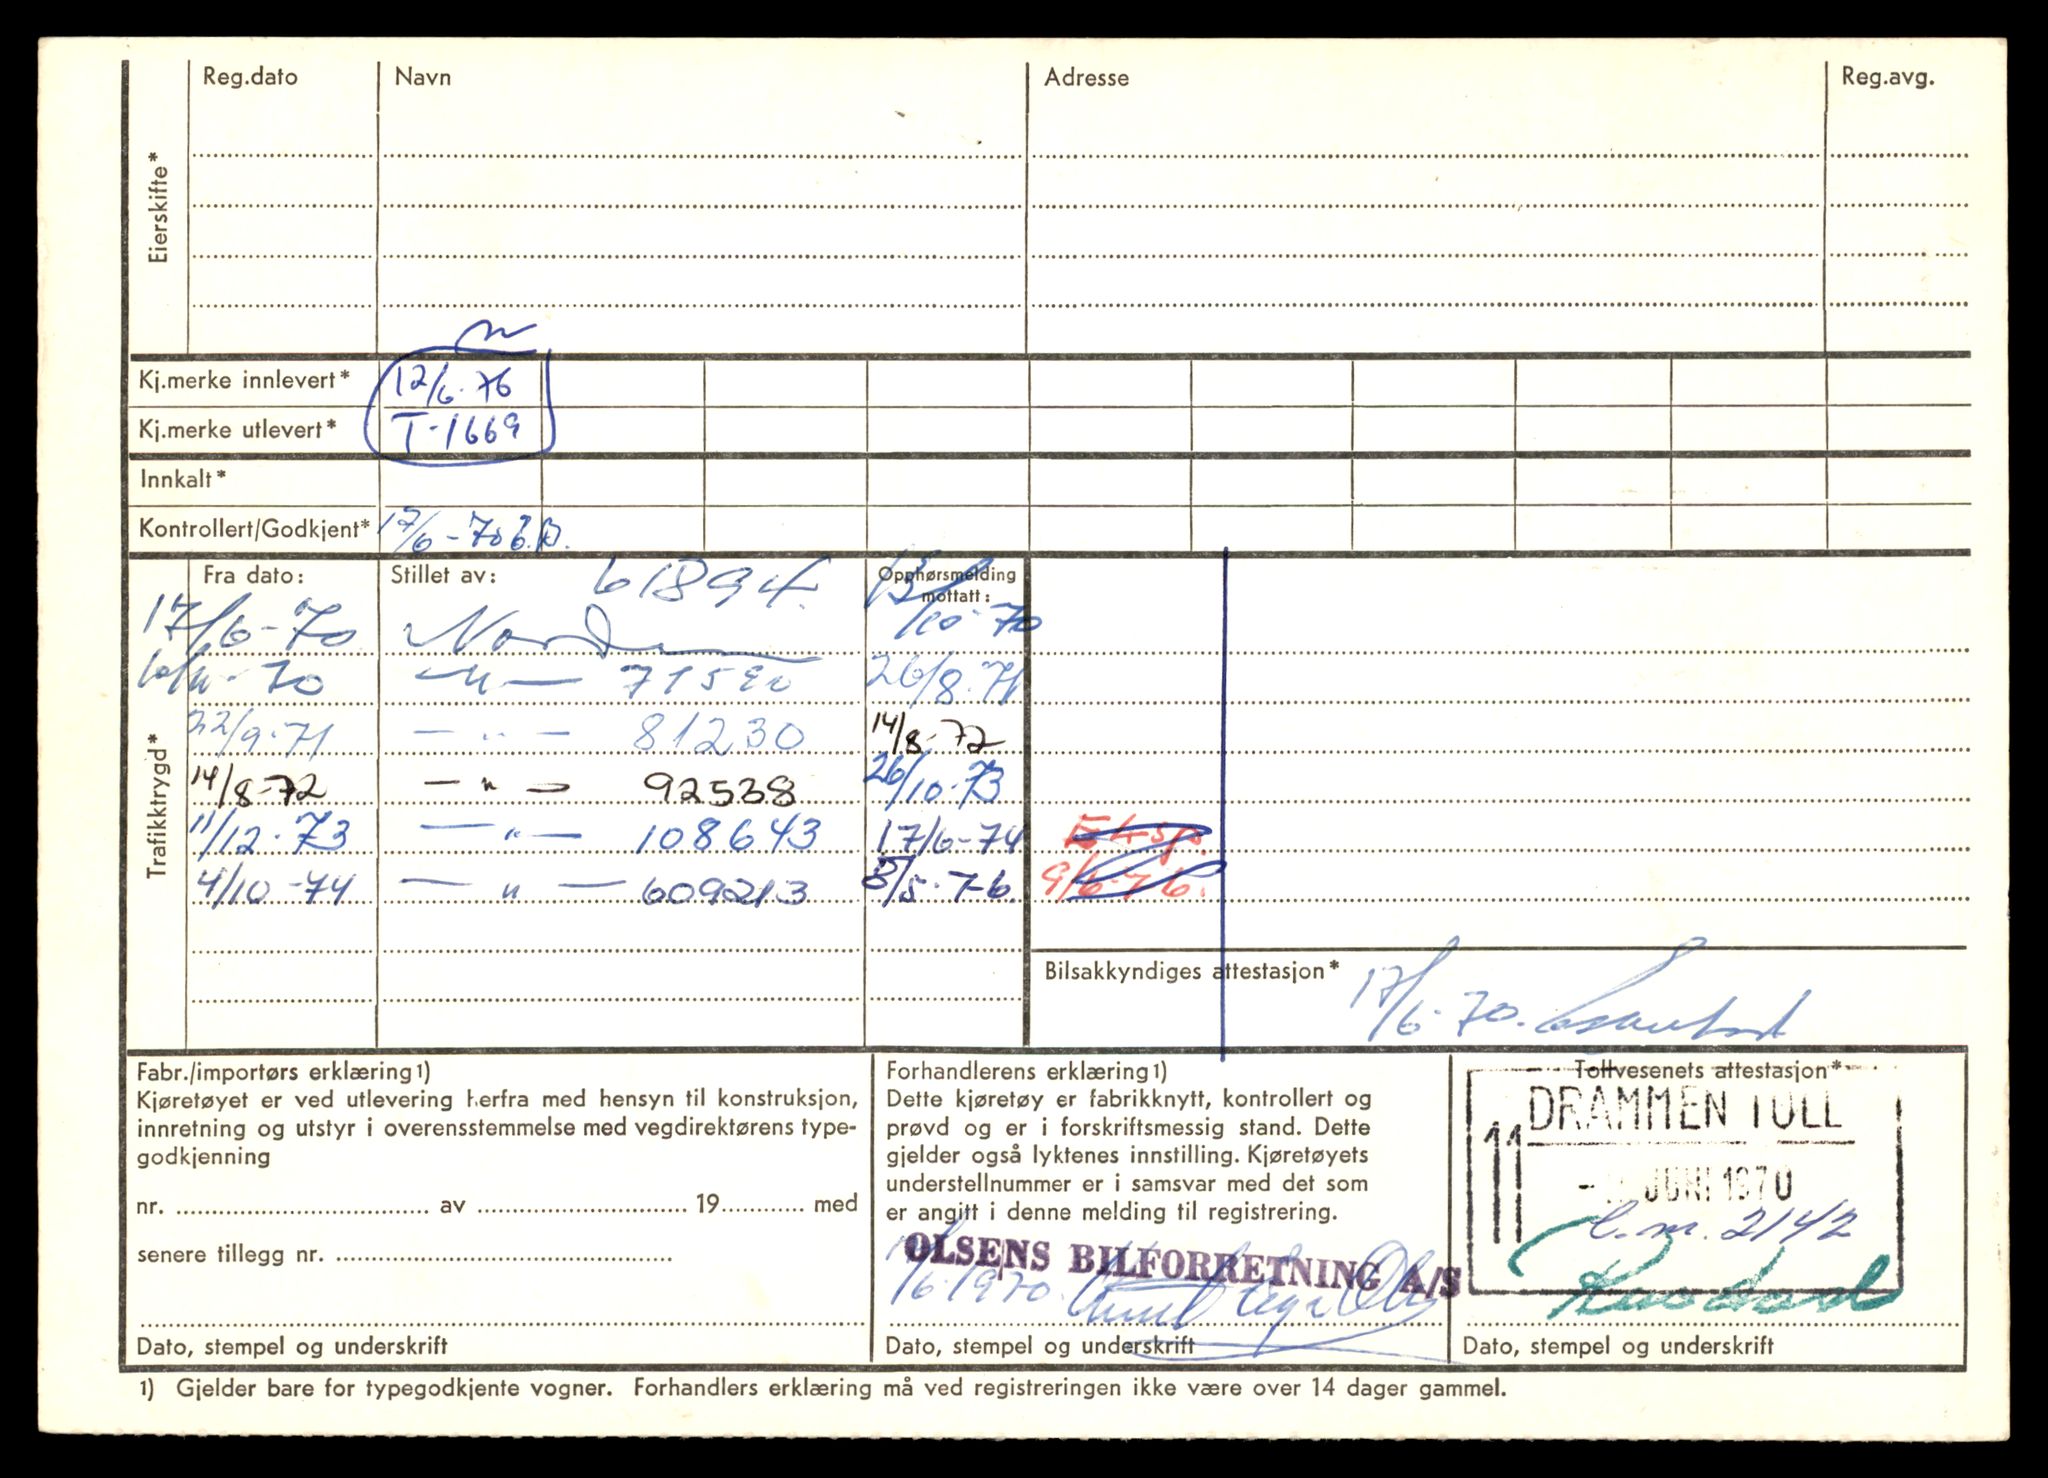 Reg.dato Navn Adresse Reg.avg.
Eierskifte*
Kj.merke innlevert* 12/6-76
Kj.merke utlevert* T-1669
Innkalt*
Kontrollert/Godkjent* 17/6-70
Trafikktrygd*
Fra dato: Stillet av: 61894. Opphørsmelding mottatt:
17/6-70 Norden /10-70
70 — " — 71520 26/8-71
22/9-71 — " — 81230 14/8-72
14/8-72 — " — 92538 26/10-73
11/12-73 — " — 108643 17/6-74
4/10-74 — " — 609213 8/5-76.
Eksp.
9/6-76.
Bilsakkyndiges attestasjon* 17/6-70.
Fabr./importørs erklæring1)
Kjøretøyet er ved utlevering herfra med hensyn til konstruksjon,
innretning og utstyr i overensstemmelse med vegdirektørens type-
godkjenning
nr. av 19 med
senere tillegg nr.
Dato, stempel og underskrift
Forhandlerens erklæring1)
Dette kjøretøy er fabrikknytt, kontrollert og
prøvd og er i forskriftsmessig stand. Dette
gjelder også lyktenes innstilling. Kjøretøyets
understellnummer er i samsvar med det som
er angitt i denne melding til registrering.
OLSENS BILFORRETNING A/S
/6-1970.
Dato, stempel og underskrift
Tollvesenets attestasjon*
DRAMMEN TOLL
11
JUNI 1970
l.m. 2142
Dato, stempel og underskrift
1) Gjelder bare for typegodkjente vogner. Forhandlers erklæring må ved registreringen ikke være over 14 dager gammel.